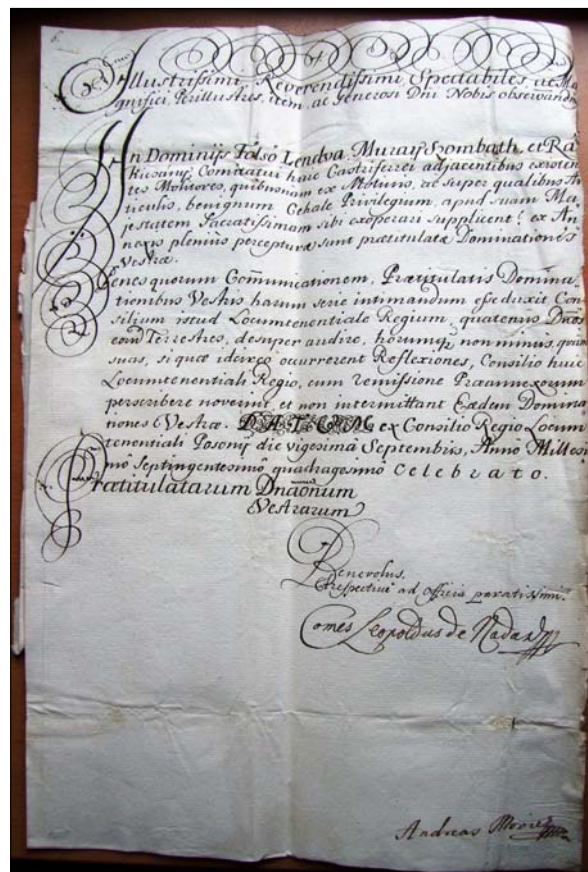 Illustrissimi, Reverendissimi, Spectabiles, ac Ma
gnifici, Perillustres, item, ac Generosi Dni Nobis observandmi
In Dominijs Folsó Lendva, Muray Szombath, et Ra
Comitatui huic Castriferrei adjacentibus existen
tes Molitores, quibusnam ex Motivis, ac super qualibus Ar
ticulis, benignum Cehale Privilegium, apud suam Ma
jestatem Sacratissimam sibi exoperari supplicent? ex An
nexis plenius percepturæ sunt prætitulatæ Dominationes
Vestræ.
Penes quorum Com̃unicationem, Prætitulatis Domina
tionibus Vestris harum serie intimandum esse duxit Con
silium istud Locumtenentiale Regium, quatenus
eotum Terrestres, desuper audire, horumq non minus, quam
suas, si quæ idcirco occurrerent Reflexiones, Consilio huic
Locumtenentiali Regio, cum remissione Præannexorum
perscribere noverint, et non intermittant Eædem Domina
tiones Vestræ. DATUM ex Consilio Regio Locum
tenentiali Posonij die vigesima Septembris, Anno Millesi
mo Septingentesimo quadragesimo Celebrato.
Prætitulatarum Dnaõnum
Vestrarum
Benevolus.
ad officia paratissimus
Comes Leopoldus de Nadasd
Andreas